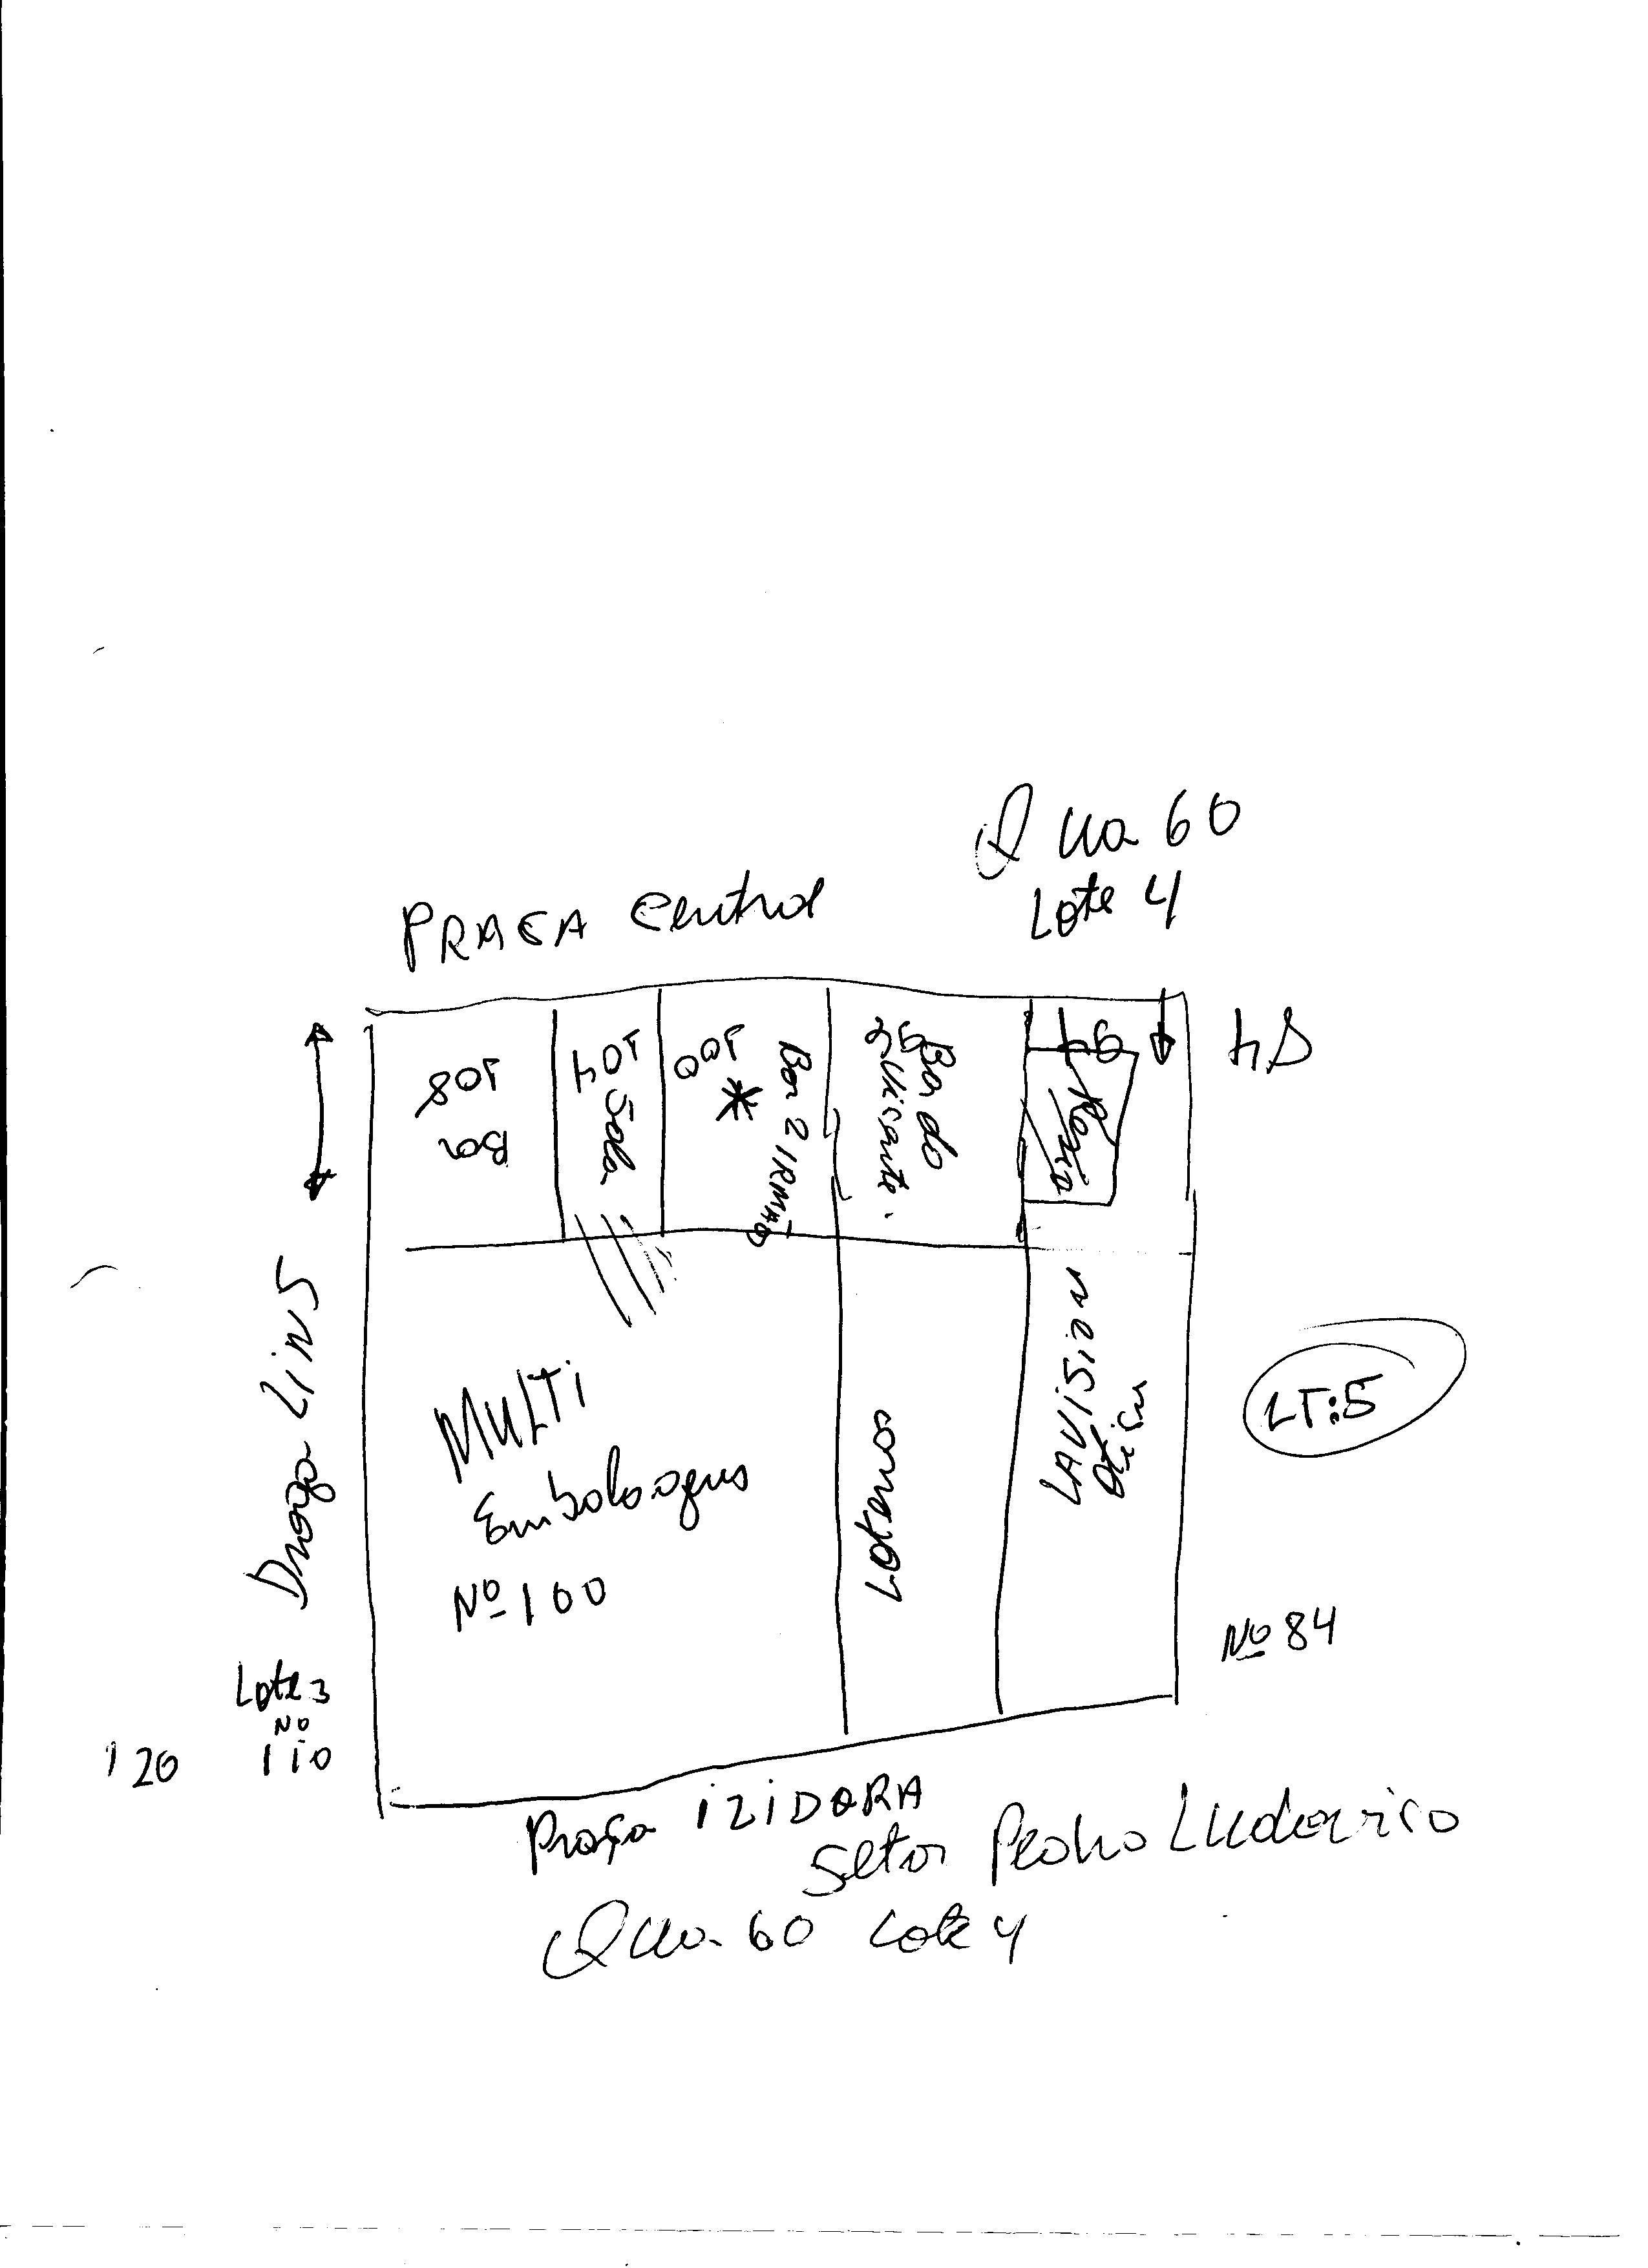 Qua 60
Lote 4
PRAÇA Central
108
Bar
104
Sala
100
*
Bar 2 IRMÃO
Bar do
94
LAVISION
Drogo Lins
MULTi
Embalagens
Nº 100
LT:5
Nº 84
Lote 3
Nº
110
120
Praça IZIDORA
Setor Pedro Ludovico
Qua. 60 Lote 4